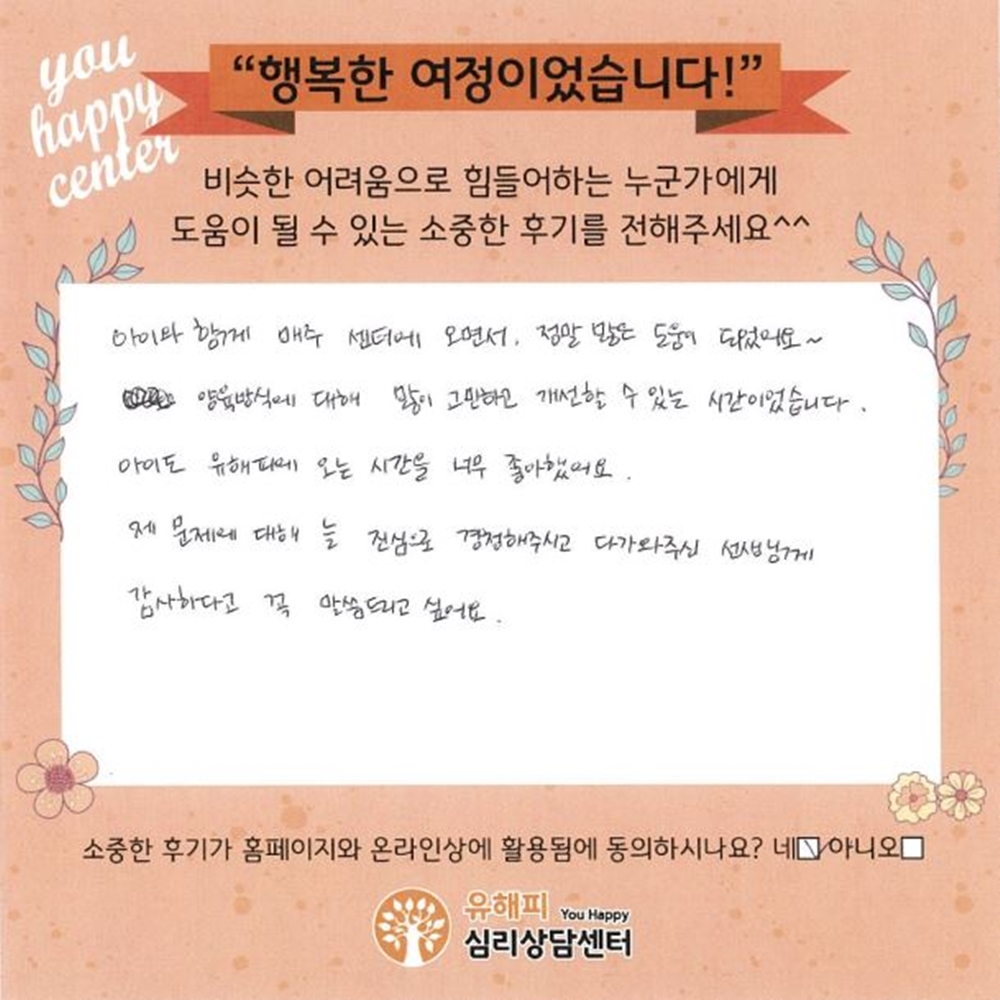 you
happy
center
“행복한 여정이었습니다!”
비슷한 어려움으로 힘들어하는 누군가에게
도움이 될 수 있는 소중한 후기를 전해주세요^^
아이와 함께 매주 센터에 오면서, 정말 많은 도움이 되었어요~
양육방식에 대해 많이 고민하고 개선할 수 있는 시간이었습니다.
아이도 유해피에 오는 시간을 너무 좋아했어요.
제 문제에 대해 늘 진심으로 걱정해주시고 다가와주신 선생님께
감사하다고 꼭 말씀드리고 싶어요.
소중한 후기가 홈페이지와 온라인상에 활용됨에 동의하시나요? 네☑ 아니오□
유해피 You Happy
심리상담센터